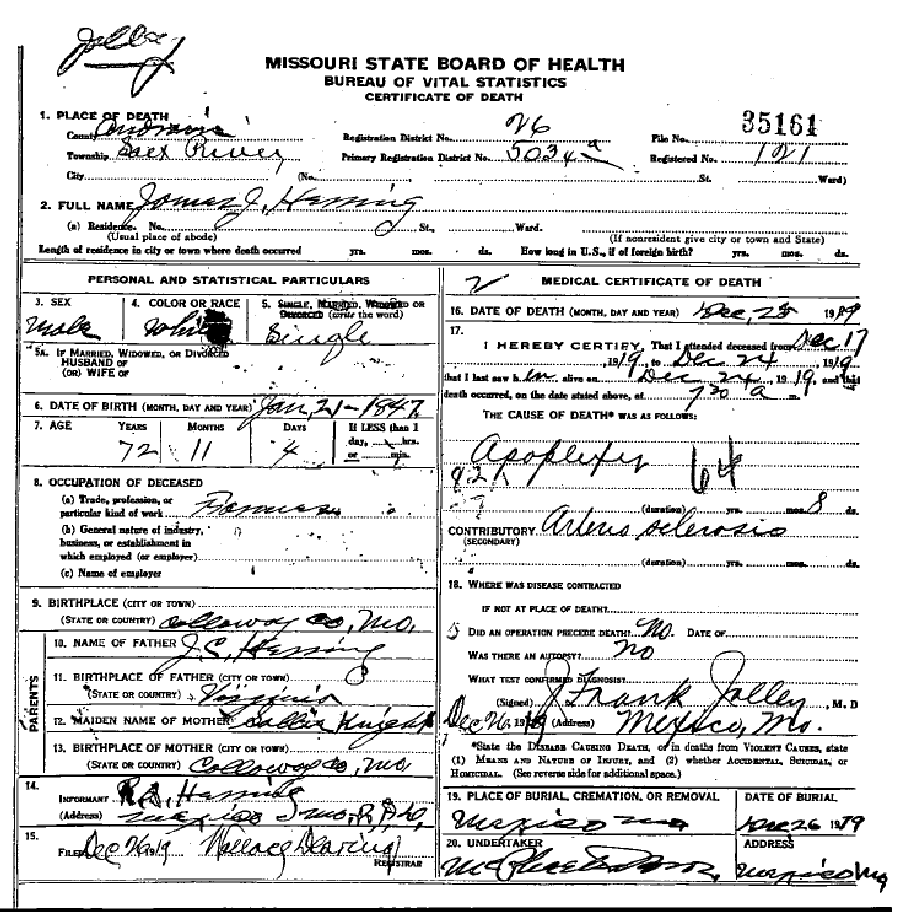 Jolley
MISSOURI STATE BOARD OF HEALTH
BUREAU OF VITAL STATISTICS
CERTIFICATE OF DEATH
1. PLACE OF DEATH
County
Township Salt River
City (No. St. Ward)
Registration District No. 26
Primary Registration District No. 5034 a
File No. 35161
Registered No. 121
2. FULL NAME James J. Herring
(a) Residence. No. St., Ward.
(Usual place of abode) (If nonresident give city or town and State)
Length of residence in city or town where death occurred yrs. mos. ds. How long in U.S., if of foreign birth? yrs. mos. ds.
PERSONAL AND STATISTICAL PARTICULARS
3. SEX
Male
4. COLOR OR RACE
White
5. SINGLE, MARRIED, WIDOWED OR
DIVORCED (write the word)
Single
5A. IF MARRIED, WIDOWED, OR DIVORCED
HUSBAND OF
(OR) WIFE OF
6. DATE OF BIRTH (MONTH, DAY AND YEAR) Jan 21-1847
7. AGE YEARS MONTHS DAYS
72 11 4
If LESS than 1
day, hrs.
or
8. OCCUPATION OF DECEASED
(a) Trade, profession, or
particular kind of work Farmer
(b) General nature of industry,
business, or establishment in
which employed (or employer)
(c) Name of employer
9. BIRTHPLACE (CITY OR TOWN)
(STATE OR COUNTRY) Calloway Co, Mo.
PARENTS
10. NAME OF FATHER J.C. Herring
11. BIRTHPLACE OF FATHER (CITY OR TOWN)
(STATE OR COUNTRY) Virginia
12. MAIDEN NAME OF MOTHER Sallie Knight
13. BIRTHPLACE OF MOTHER (CITY OR TOWN)
(STATE OR COUNTRY) Calloway Co, Mo.
14.
INFORMANT Herring
(Address) Mexico Mo.
15.
FILED Dec 26 1919 Wallace Dearing
REGISTRAR
2
MEDICAL CERTIFICATE OF DEATH
16. DATE OF DEATH (MONTH, DAY AND YEAR) Dec. 25 1919
17.
I HEREBY CERTIFY, That I attended deceased from Dec 17
, 1919, to Dec 24, 1919
that I last saw him alive on Dec 24, 1919, and that
death occurred, on the date stated above, at 730 a m.
THE CAUSE OF DEATH* WAS AS FOLLOWS:
Apoplexy
82A 64
(duration) yrs. mos. 8 ds.
CONTRIBUTORY Arterio sclerosis
(SECONDARY)
(duration) yrs. mos. ds.
18. WHERE WAS DISEASE CONTRACTED
IF NOT AT PLACE OF DEATH?
DID AN OPERATION PRECEDE DEATH? No. DATE OF
WAS THERE AN AUTOPSY? no
WHAT TEST CONFIRMED DIAGNOSIS?
(Signed) J Frank Jolley, M. D
Dec 26, 1919 (Address) Mexico, Mo.
*State the DISEASE CAUSING DEATH, or in deaths from VIOLENT CAUSES, state
(1) MEANS AND NATURE OF INJURY, and (2) whether ACCIDENTAL, SUICIDAL, or
HOMICIDAL. (See reverse side for additional space.)
19. PLACE OF BURIAL, CREMATION, OR REMOVAL
Mexico Mo
DATE OF BURIAL
Dec 26 1919
20. UNDERTAKER
ADDRESS
Mexico Mo